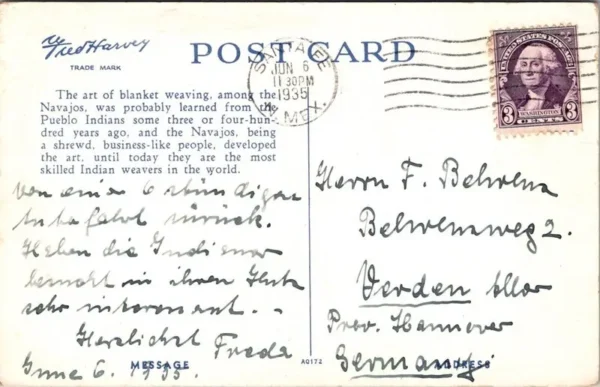 Fred Harvey
TRADE MARK
POST CARD
SANTA FE
JUN 6
11 30 PM
1935
N. MEX.
UNITED STATES POSTAGE
3 3
WASHINGTON
CENTS
The art of blanket weaving, among the
Navajos, was probably learned from the
Pueblo Indians some three or four-hun-
dred years ago, and the Navajos, being
a shrewd, business-like people, developed
the art, until today they are the most
skilled Indian weavers in the world.
von einer 6 stündigen
Autofahrt zurück.
Haben die Indianer
besucht in ihren
sehr interessant. -
Herzlichst Freda
June 6. 1935.
Herrn F. Behrens
Behrensweg 2.
Verden Aller
Prov. Hannover
Germany
MESSAGE
A0172
ADDRESS